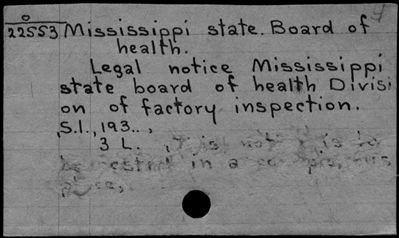 4
O
22553 Mississippi state. Board of
health.
Legal notice Mississippi
state board of health Divisi
on of factory inspection.
S.l., 193..,
3 L.
in a